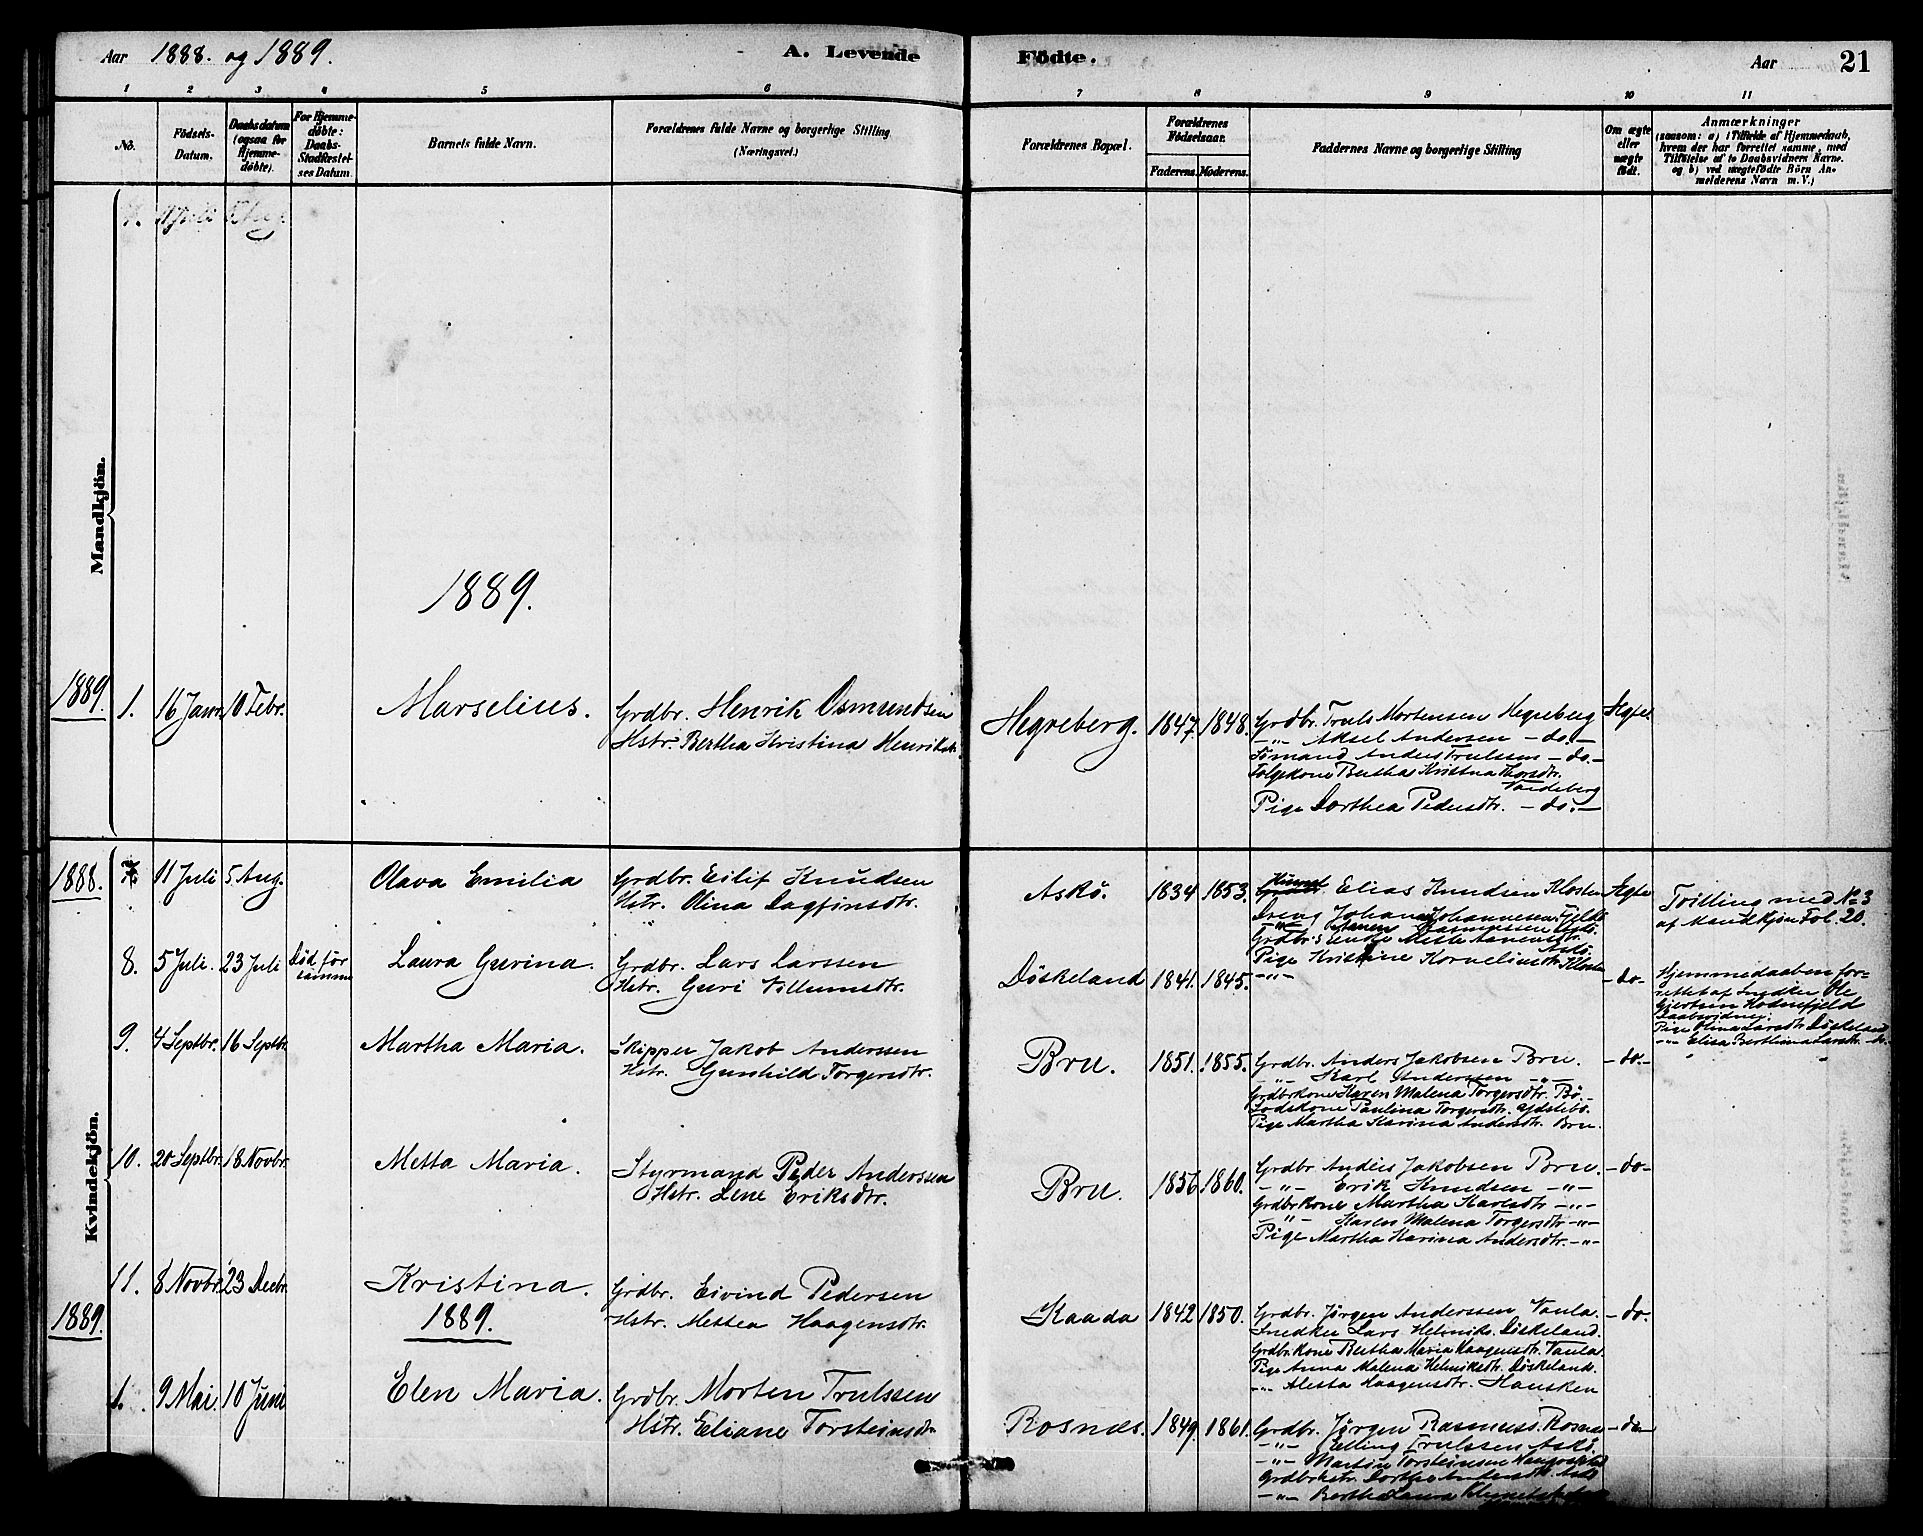 Aar 1888. og 1889.
A. Levende
Födte.
Aar
21
1 2 3 4 5 6 7 8 9 10 11
No.
Födsels-
Datum.
Daabsdatum
(ogsaa for
Hjemme-
döbte).
For Hjemme-
döbte:
Daabs-
Stadfæstel-
ses Datum.
Barnets fulde Navn.
Forældrenes fulde Navne og borgerlige Stilling
(Næringsvei.)
Forældrenes Bopæl.
Forældrenes
Födselsaar.
Faderens. Moderens.
Faddernes Navne og borgerlige Stilling
Om ægte
eller
uægte
födt.
Anmærkninger
(saasom: a) i Tilfælde af Hjemmedaab,
hvem der har forrettet samme, med
Tilföielse af to Daabsvidners Navne.
og b) ved uægtefödte Börn An-
melderens Navn m. V.)
Mandkjön.
1889.
1889. 1. 16 Janr. 10 Febr. Marselius.
Grdbr. Henrik Osmundsen
Hstr. Bertha Kristina Henriks
Hegreberg. 1847. 1848.
Grdbr. Truls Mortensen Hegreberg
-"- Aksel Andersen - do. -
Sömand Anders Trulssen - do -
Folgekone Bertha Kristna Thorsdtr.
Vandeberg
Pige Dorthea Pedersdtr. - do. -
Ægte.
Kvindekjön.
1888. 11 Juli 5 Aug. Olava Emilia
Grdbr. Eilif Knudsen
Hstr. Olina Dagfinsdtr.
Askö. 1834 1853.
Elias Knudsen Kloster
Dreng Johan Johannesen Fjeldö
Pige Kristine Kornelius Kloster
Ægte
Tvilling med No 3
af Mandkjön Fol. 20.
8. 5 Juli. 23 Juli Död för
samme
Laura Gurina.
Grdbr. Lars Larssen
Hstr. Guri Villumsdtr.
Döskeland 1841. 1845.
-"-
- do -
Hjemmedaaben for-
rettet af Snedker Ole
Gjertsen Hodnefjeld
Daabsvidner:
Pige Olina Larsdtr Döskeland
-"- Elisa Berthina Larsdtr. do.
9. 4 Septbr. 16 Septbr. Martha Maria.
Skipper Jakob Anderssen
Hstr. Gunhild Torgersdtr.
Bru. 1851. 1855.
Grdbr. Anders Jakobsen Bru.
-"- Karl Anderssen -"-
Grdbrkone Karen Malena Torgersdtr. Bö.
Lodskone Paulina Torgersdtr. Ydstebö.
Pige Martha Karina Andersdtr. Bru.
- do. -
10. 20 Septbr. 18 Novbr. Metta Maria.
Styrmand Peder Anderssen
Hstr. Lene Eriksdtr.
Bru. 1856 1860.
Grdbr. Anders Jakobsen Bru.
-"- Erik Knudsen -"-
Grdbrkone Martha Karlsdtr -"-
-"- Karen Malena Torgersdtr -"-
Pige Martha Karina Andersdtr. -"-
- do -
11. 8 Novbr. 23 Decbr. Kristina.
Grdbr. Eivind Pedersen
Hstr. Mettea Haagensdtr.
Kaada 1842 1850.
Grdbr. Jörgen Anderssen Vaula.
Snedker Lars Helmiks. Döskeland.
Grdbr.kone Bertha Maria Haagensdtr. Vaula.
Pige Anna Malena Helmiksdtr. Döskeland.
-"- Alesta Haagensdtr. Hausken
- do.
1889. 1889.
1. 9 Mai. 10 Juni Elen Maria.
Grdbr. Morten Trulssen
Hstr. Eliane Torsteinsdtr
Rosnæs. 1849. 1861.
Grdbr. Jörgen Rasmuss. Rosnæs
-"- Elling Trulssen Askö.
-"- Martin Torsteinsen
Grdbrhstr. Dorthe Andersdtr. Askö
-"- Bertha Laura
- do -